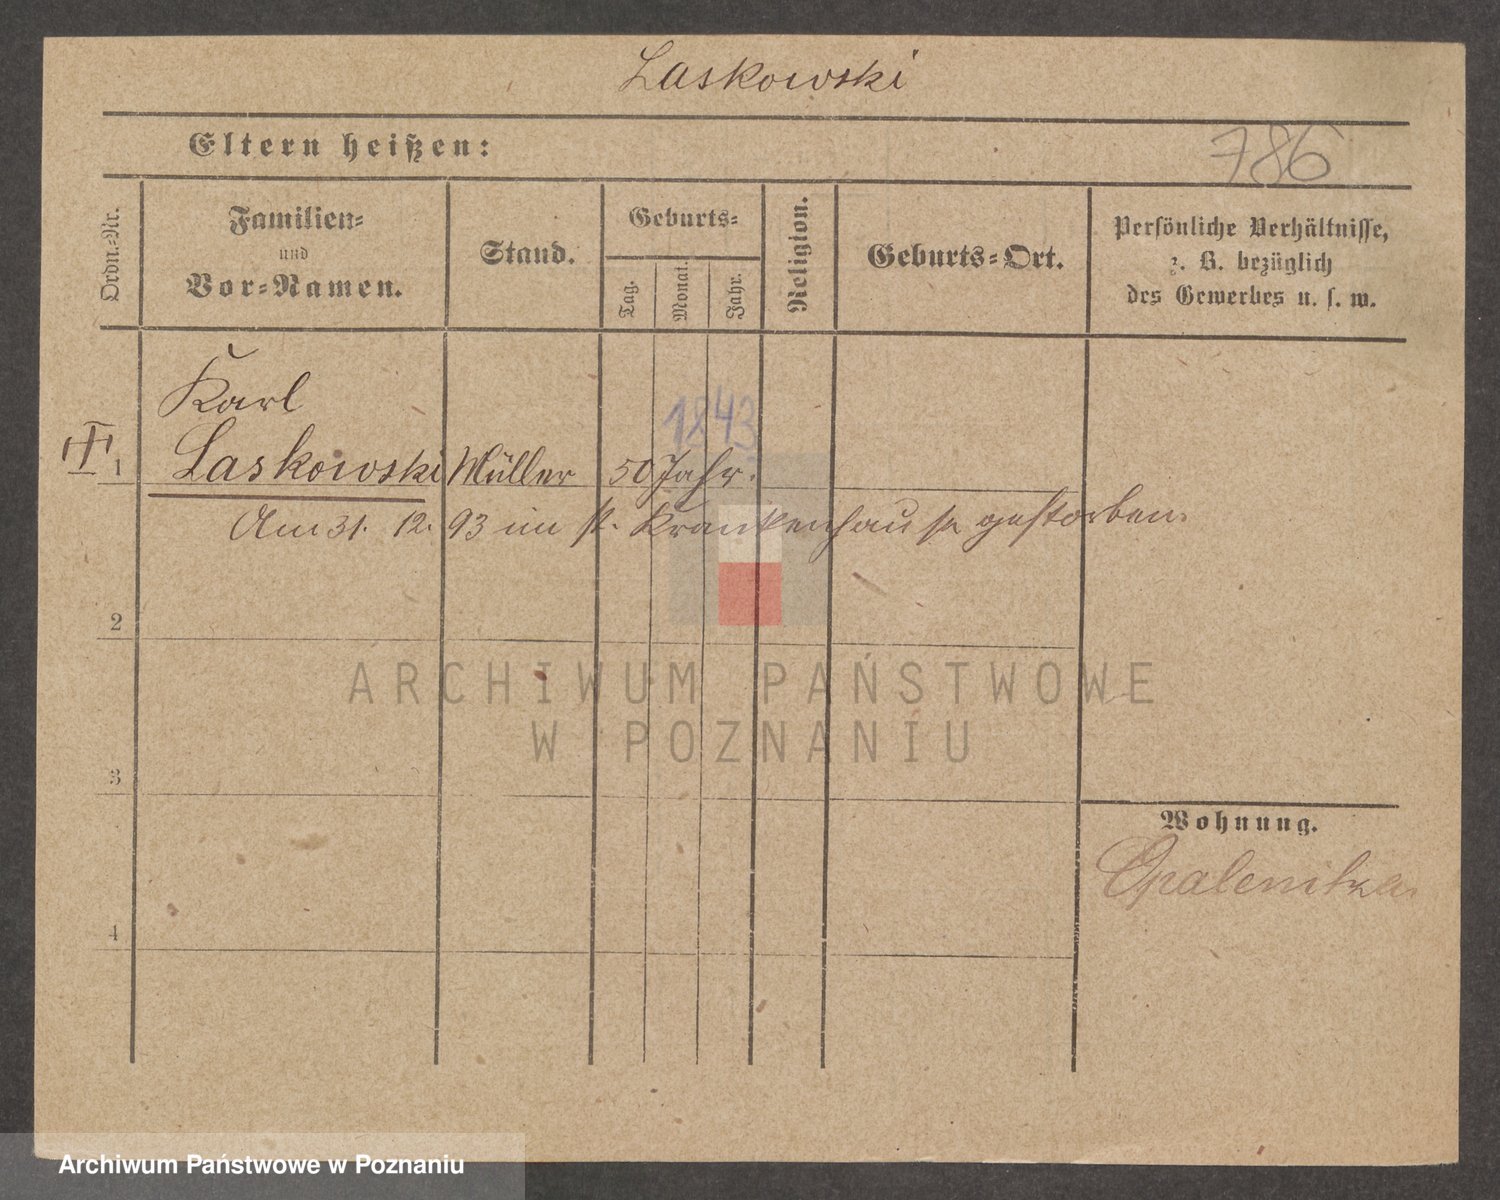 Laskowski
Eltern heißen:
786
Ordn.-Nr.
Familien-
und
Vor-Namen.
Stand.
Geburts-
Tag.
Monat.
Jahr.
Religion.
Geburts-Ort.
Persönliche Verhältnisse,
z. B. bezüglich
des Gewerbes u. s. w.
Karl
1843
1 Laskowski Müller 50 Jahr.
Am 31. 12. 93 im st. Krankenhause gestorben.
2
ARCHIWUM PAŃSTWOWE
W POZNANIU
3
Wohnung.
Opalenitza
4
Archiwum Państwowe w Poznaniu